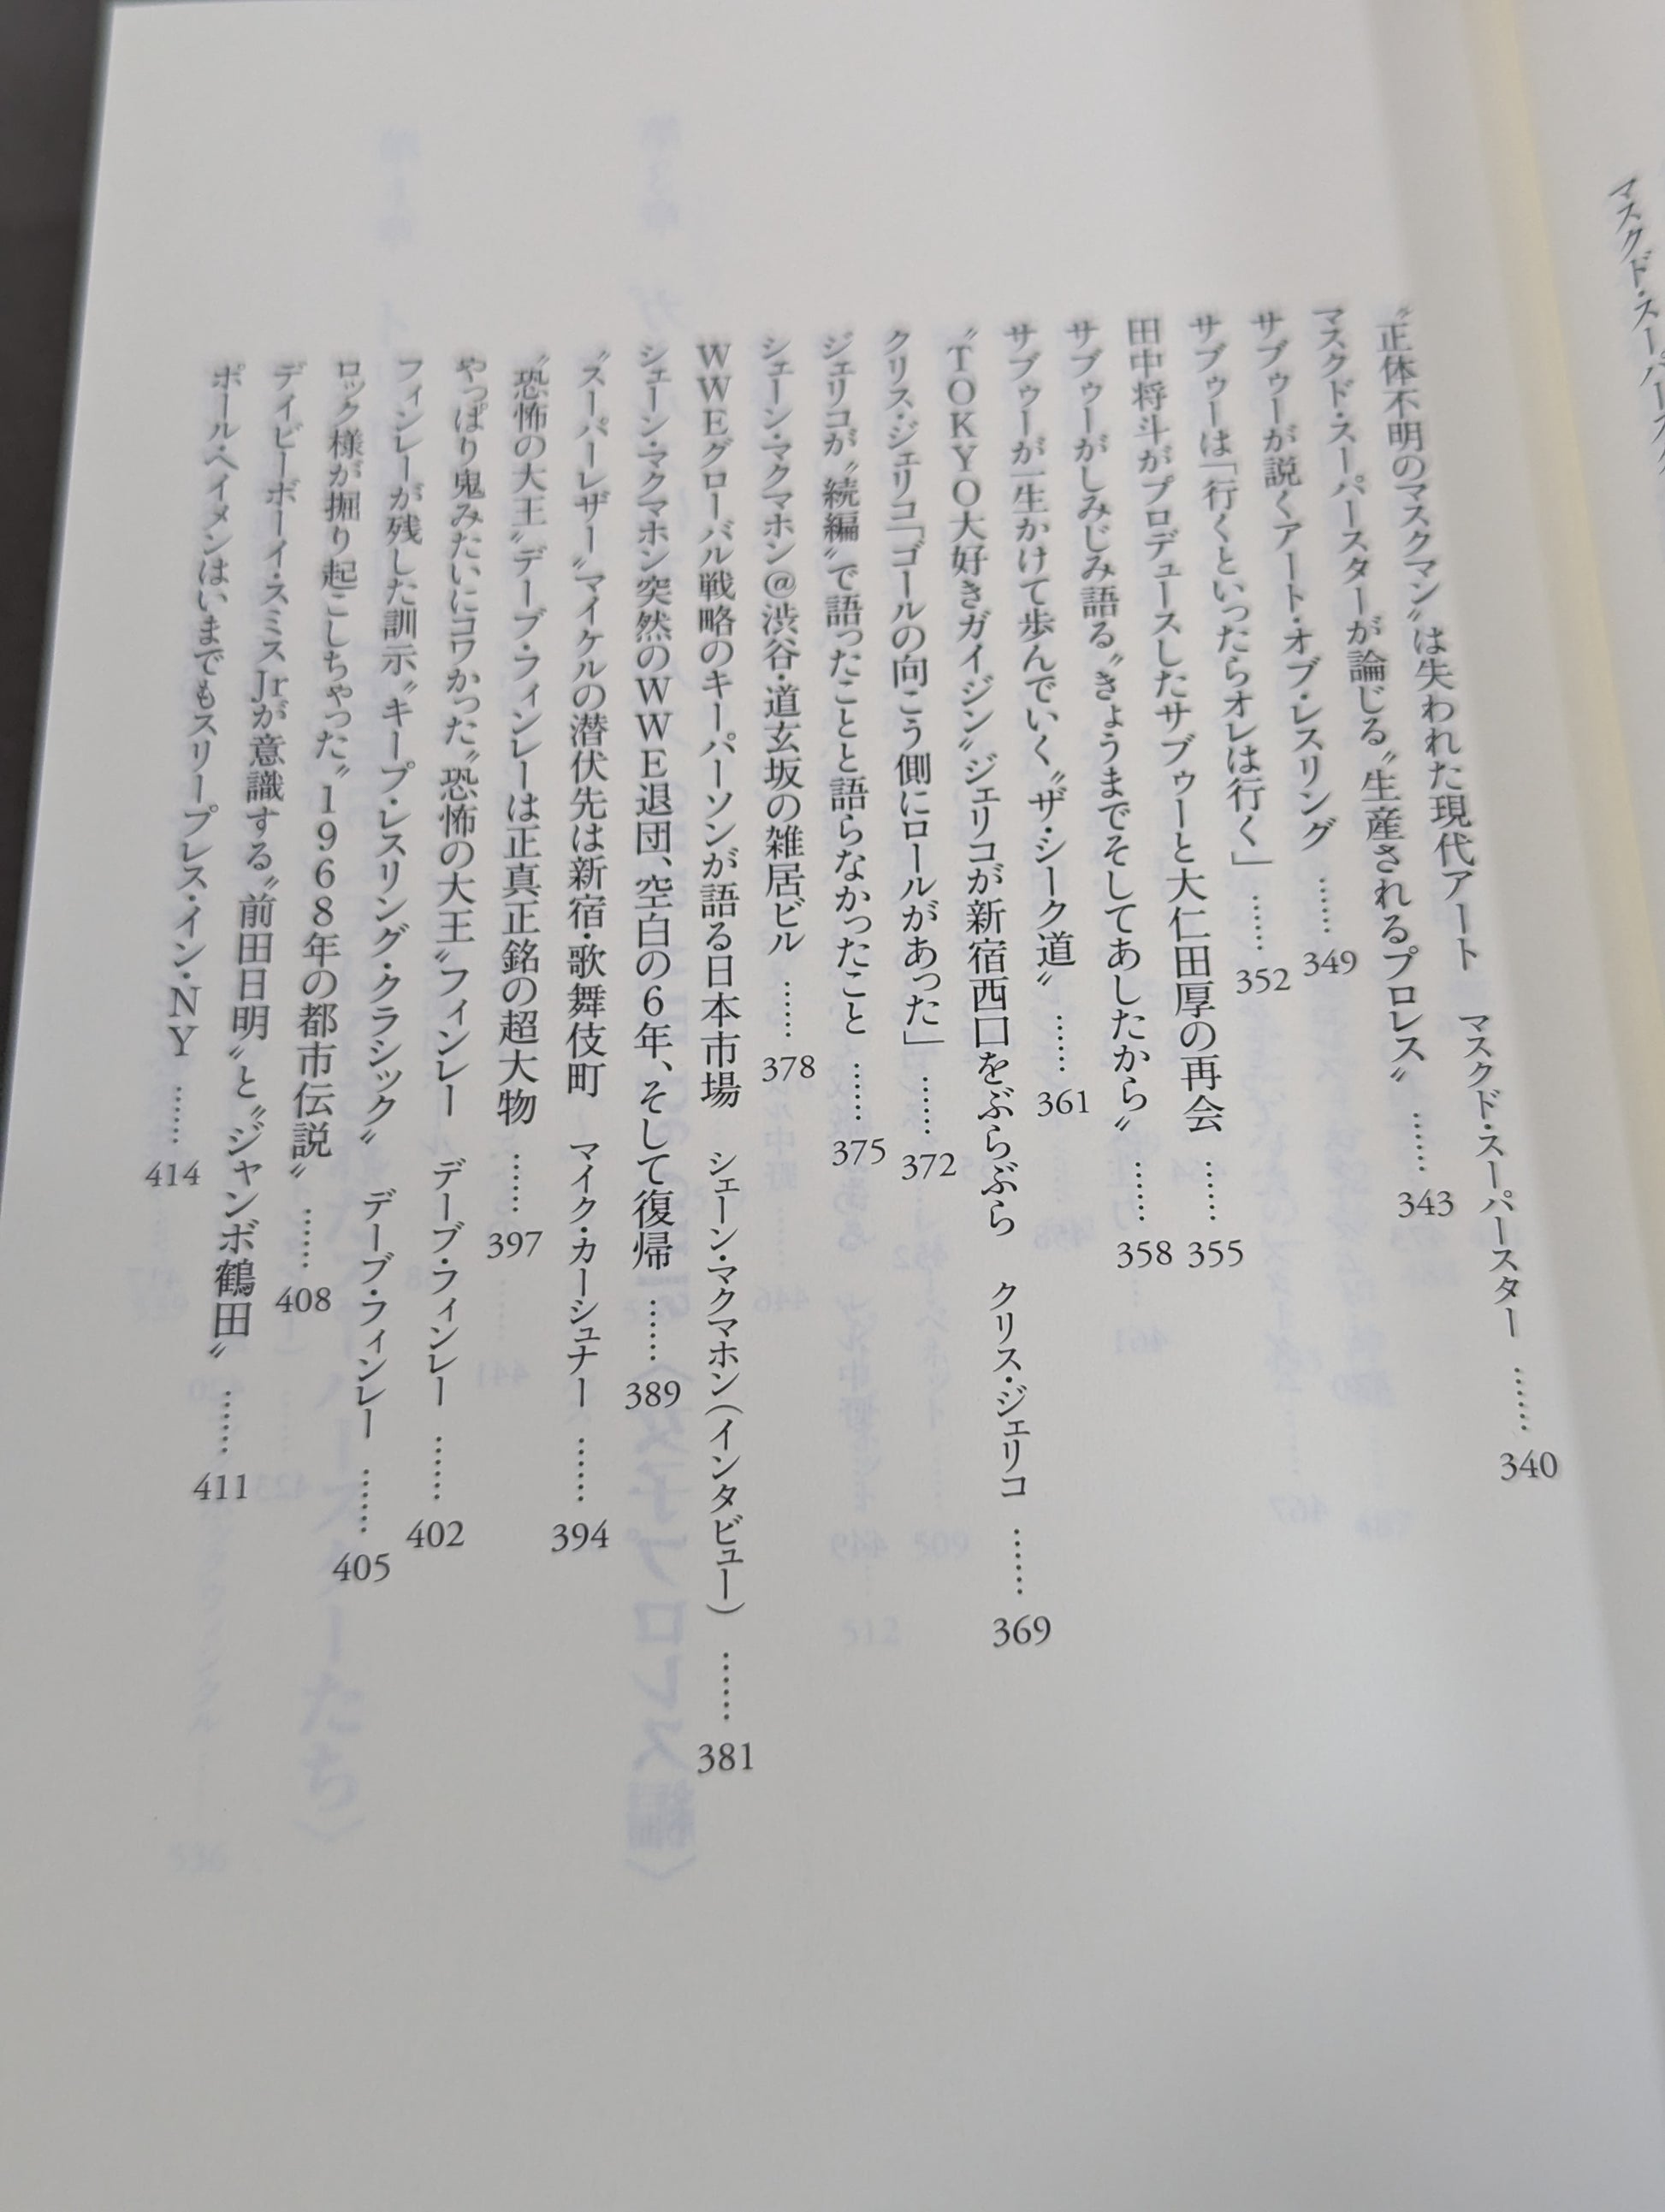 マスクド・スーパースタ
〝正体不明のマスクマン〟は失われた現代アート　マスクド・スーパースター ……340
マスクド・スーパースターが論じる〝生産されるプロレス〟 ……343
サブゥーが説くアート・オブ・レスリング ……349
サブゥーは「行くといったらオレは行く」 ……352
田中将斗がプロデュースしたサブゥーと大仁田厚の再会 ……355
サブゥーがしみじみ語る〝きょうまでそしてあしたから〟 ……358
サブゥーが一生かけて歩んでいく〝ザ・シーク道〟 ……361
〝TOKYO大好きガイジン〟ジェリコが新宿西口をぶらぶら　クリス・ジェリコ ……369
クリス・ジェリコ「ゴールの向こう側にロールがあった」 ……372
ジェリコが〝続編〟で語ったことと語らなかったこと ……375
シェーン・マクマホン＠渋谷・道玄坂の雑居ビル ……378
WWEグローバル戦略のキーパーソンが語る日本市場　シェーン・マクマホン（インタビュー） ……381
シェーン・マクマホン突然のWWE退団、空白の6年、そして復帰 ……389
〝スーパーレザー〟マイケルの潜伏先は新宿・歌舞伎町　マイク・カーシュナー ……394
〝恐怖の大王〟デーブ・フィンレーは正真正銘の超大物 ……397
やっぱり鬼みたいにコワかった〝恐怖の大王〟フィンレー　デーブ・フィンレー ……402
フィンレーが残した訓示〝キープ・レスリング・クラシック〟　デーブ・フィンレー ……405
ロック様が掘り起こしちゃった〝1968年の都市伝説〟 ……408
デイビーボーイ・スミスJrが意識する〝前田日明〟と〝ジャンボ鶴田〟 ……411
ポール・ヘイメンはいまでもスリープレス・イン・NY ……414